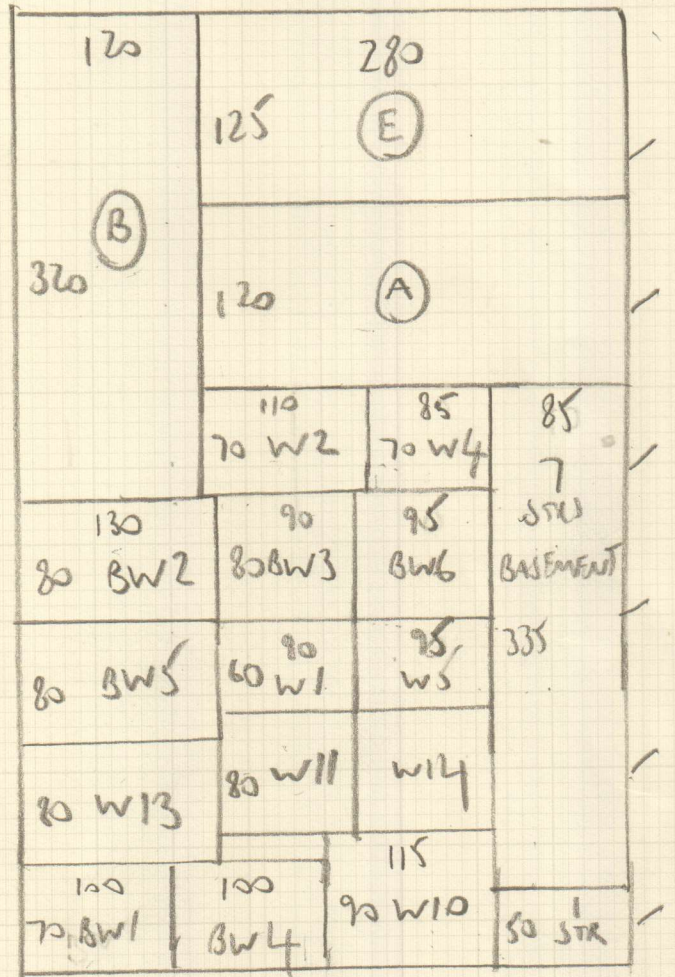 120
280
125 E
B
320
120 A
110
70 W2
85
70 W4
85
7
STRS
BASEMENT
335
130
80 BW2
90
80 BW3
95
BW6
80 BW5
90
60 W1
95
W5
80 W13
80 W11
W14
100
70 BW1
100
BW4
115
90 W10
1
50 STR